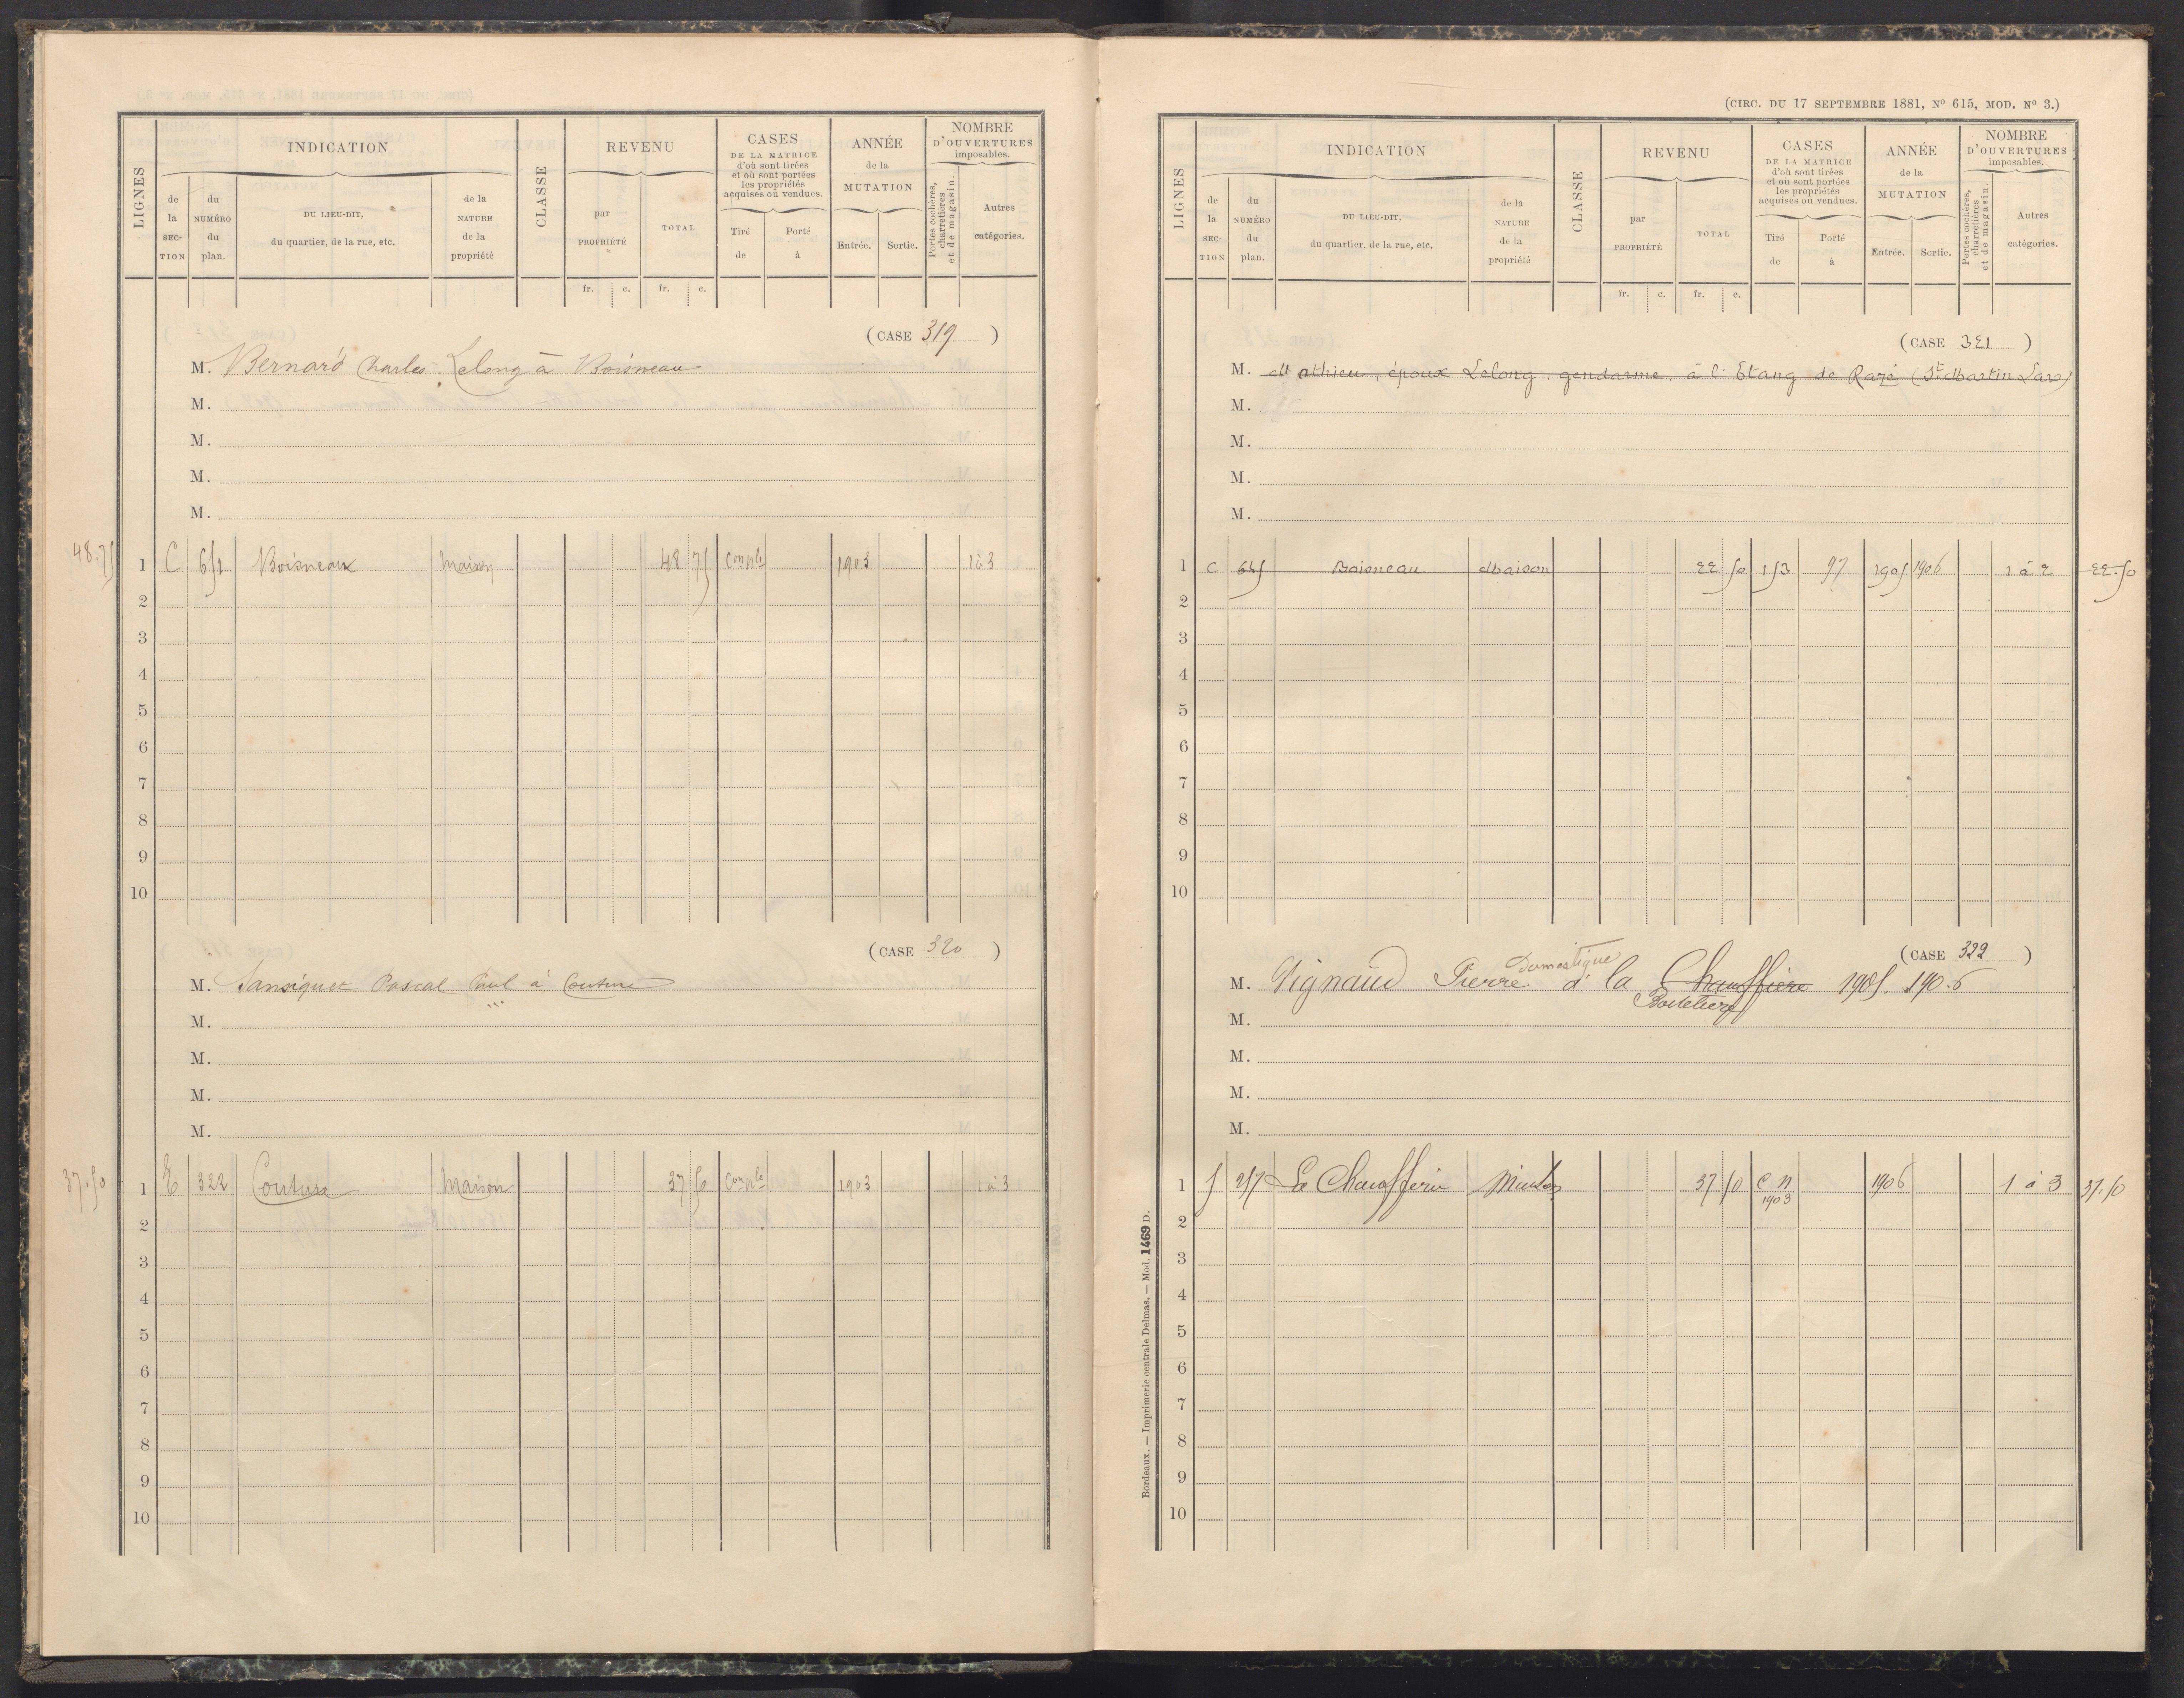 LIGNES
INDICATION
de la SECTION
du NUMÉRO du plan.
DU LIEU-DIT, du quartier, de la rue, etc.
de la NATURE de la propriété
CLASSE
REVENU
par PROPRIÉTÉ
TOTAL
fr. c. fr. c.
CASES DE LA MATRICE d'où sont tirées et où sont portées les propriétés acquises ou vendues.
Tiré de
Porté à
ANNÉE de la MUTATION
Entrée. Sortie.
NOMBRE D'OUVERTURES imposables.
Portes cochères, charretières et de magasin.
Autres catégories.
(CASE 319 )
M. Bernard Charles Lelong à Boisneau
M.
M.
M.
M.
48.75 1 C 651 Boisneau Maison 48 75 1903 1 à 3
2
3
4
5
6
7
8
9
10
(CASE 320 )
M. Pascal Paul à Couture
M.
M.
M.
M.
37.50 1 E 322 Couture Maison 37 50 1903 1 à 3
2
3
4
5
6
7
8
9
10
(CIRC. DU 17 SEPTEMBRE 1881, Nº 615, MOD. Nº 3.)
LIGNES
INDICATION
de la SECTION
du NUMÉRO du plan.
DU LIEU-DIT, du quartier, de la rue, etc.
de la NATURE de la propriété
CLASSE
REVENU
par PROPRIÉTÉ
TOTAL
fr. c. fr. c.
CASES DE LA MATRICE d'où sont tirées et où sont portées les propriétés acquises ou vendues.
Tiré de
Porté à
ANNÉE de la MUTATION
Entrée. Sortie.
NOMBRE D'OUVERTURES imposables.
Portes cochères, charretières et de magasin.
Autres catégories.
(CASE 321 )
M. Mathieu, époux Lelong, gendarme, à l'Etang de Razé (St Martin Lars)
M.
M.
M.
M.
1 C 645 Boisneau Maison 22 50 153 97 1905 1906 1 à 2 22.50
2
3
4
5
6
7
8
9
10
(CASE 322 )
Domestique
M. Vignaud Pierre à la Chauffière 1905. 1906
M.
M.
M.
M.
1 257 La Chaufferie 37 50 C n 1903 1906 1 à 3 37.50
2
3
4
5
6
7
8
9
10
Bordeaux. — Imprimerie centrale Delmas. — Mod. 1469 D.